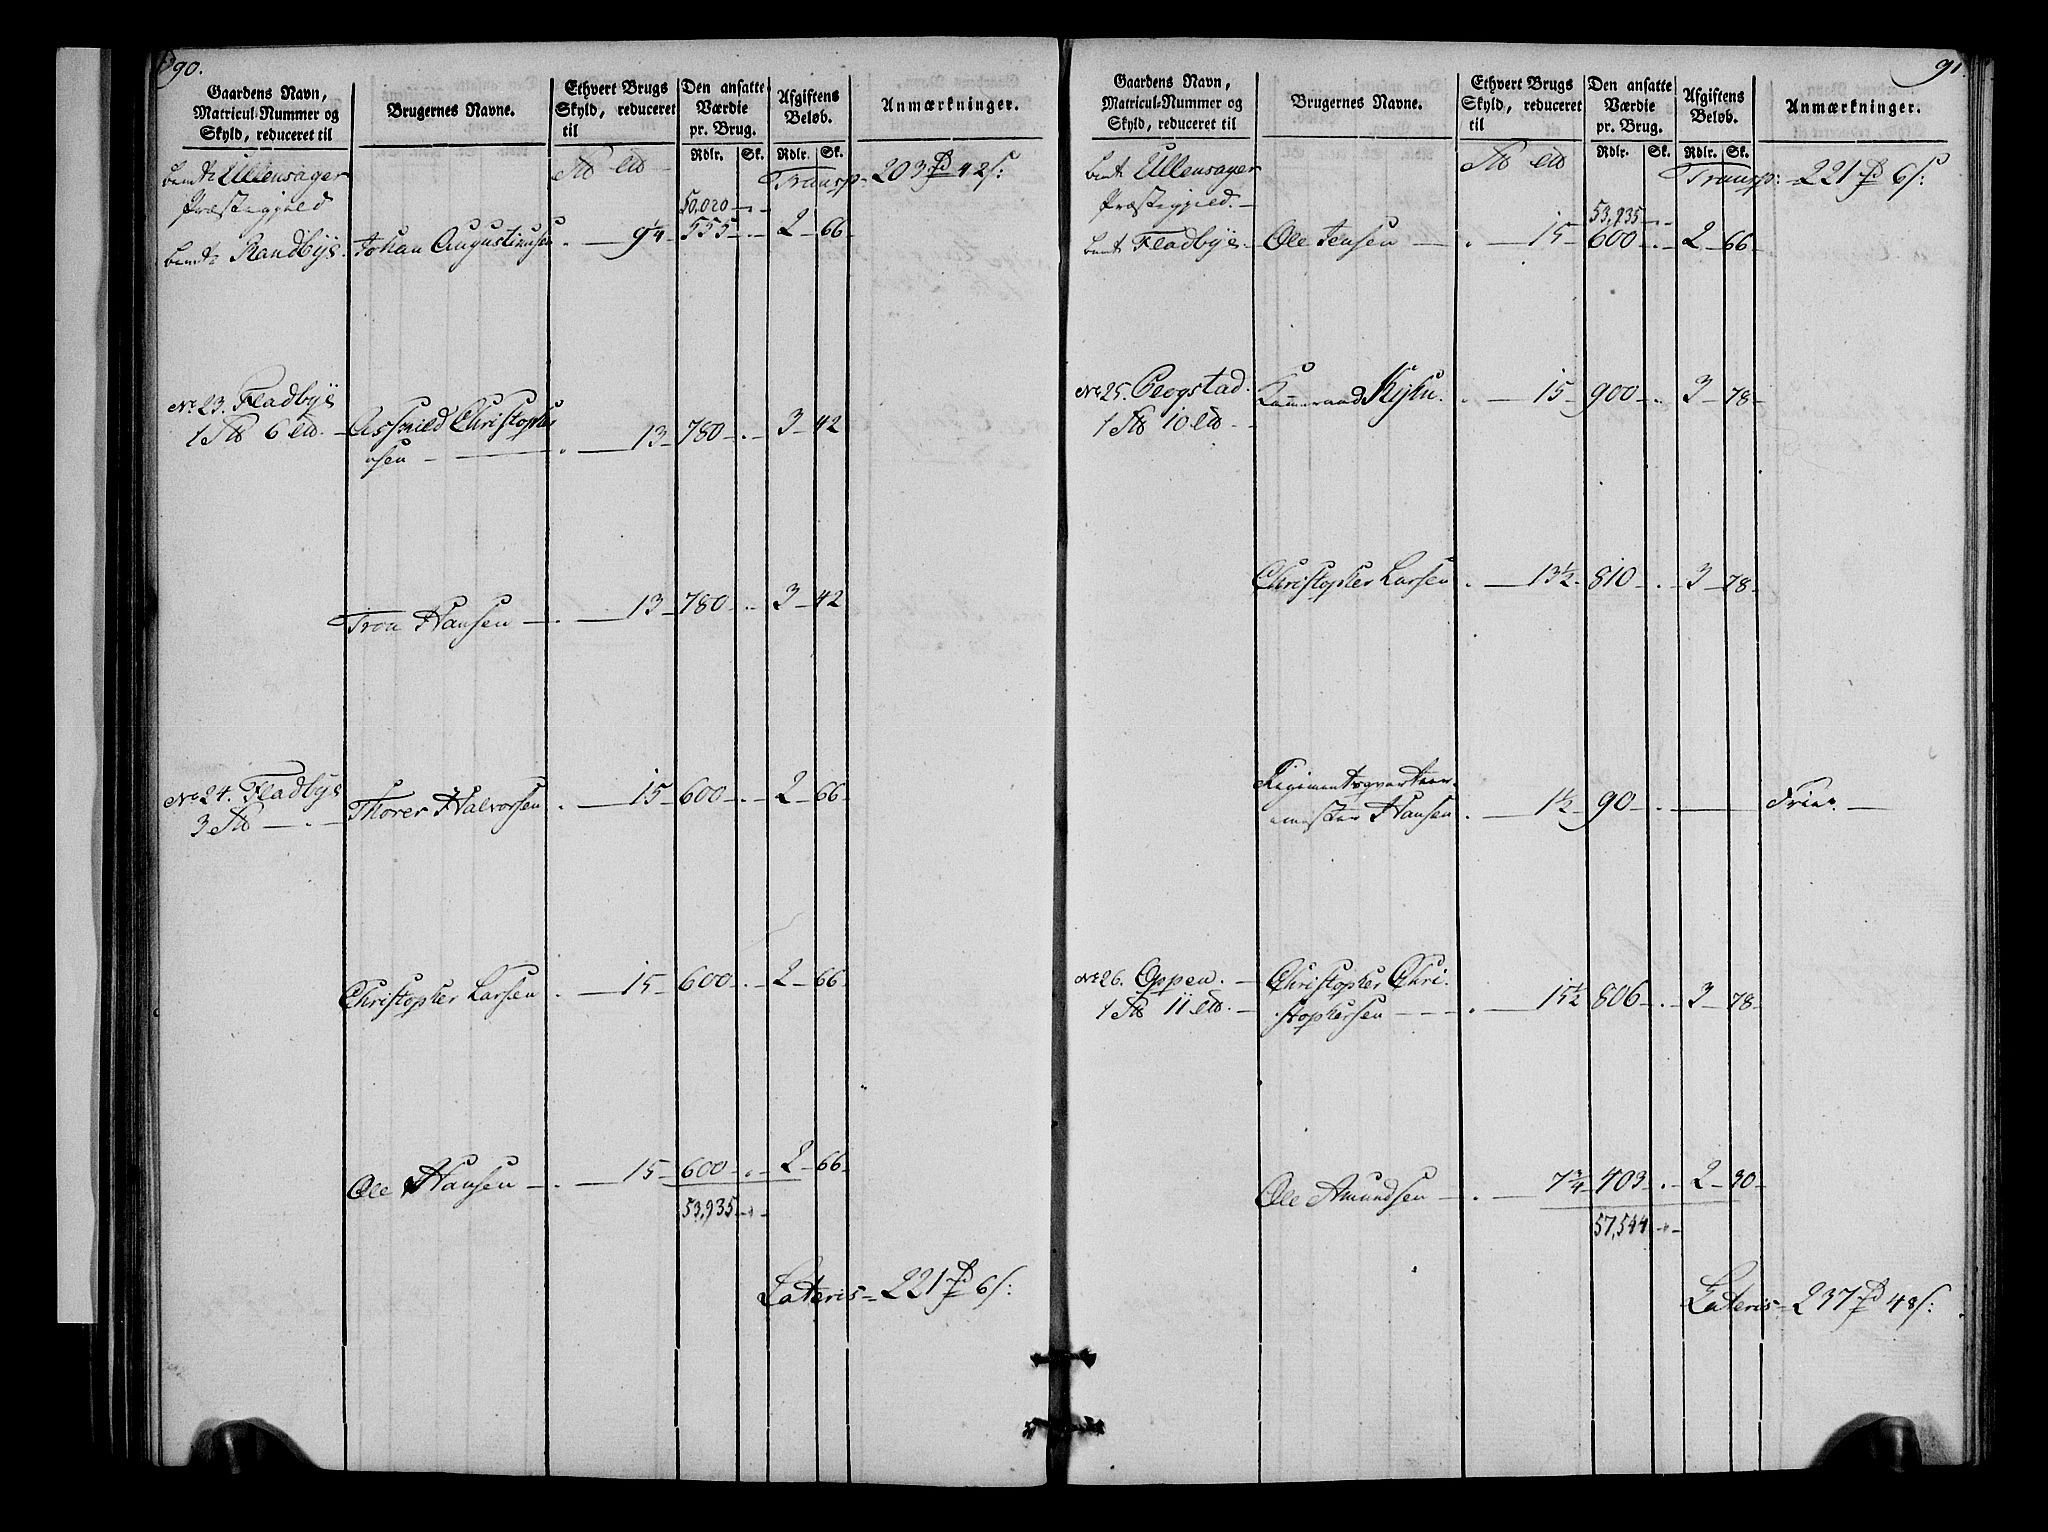 90.
Gaardens Navn, Matricul-Nummer og Skyld, reduceret til
Brugernes Navne.
Ethvert Brugs Skyld, reduceret til
Den ansatte Værdie pr. Brug.
Afgiftens Beløb.
Anmærkninger.
Rdlr. Sk. Rdlr. Sk.
Ullensager Transp: 203 42 s:
Præstegjeld 50,020
Randbÿe Johan Augustinusen 9 1/4 555 2 66
No 23. Fladbÿe
1 6 Christopher
sen 13 780 3 42
Tron Hansen 13 780 3 42
No 24. Fladbÿe Thorer Halvorsen 15 600 2 66
3
Christopher Larsen 15 600 2 66
Ole Hansen 15 600 2 66
53,935
Lateris 221 6 s:
91.
Gaardens Navn, Matricul-Nummer og Skyld, reduceret til
Brugernes Navne.
Ethvert Brugs Skyld, reduceret til
Den ansatte Værdie pr. Brug.
Afgiftens Beløb.
Anmærkninger.
Rdlr. Sk. Rdlr. Sk.
Ullensager Transp: 221 6 s:
Præstegjeld 53,935
Fladbÿe Ole Jensen 15 600 2 66
No 25. 15 900 3 78
1 10
Christopher Larsen 13 1/2 810 3 78
Regimentsqvarteer-
mester Hansen 1 1/2 90 Frie
No 26. Oppen Christopher Chri-
1 11 stophersen 15 1/2 806 3 78
Ole Amundsen 7 3/4 403 2 30
57,544
Lateris 237 48 s: